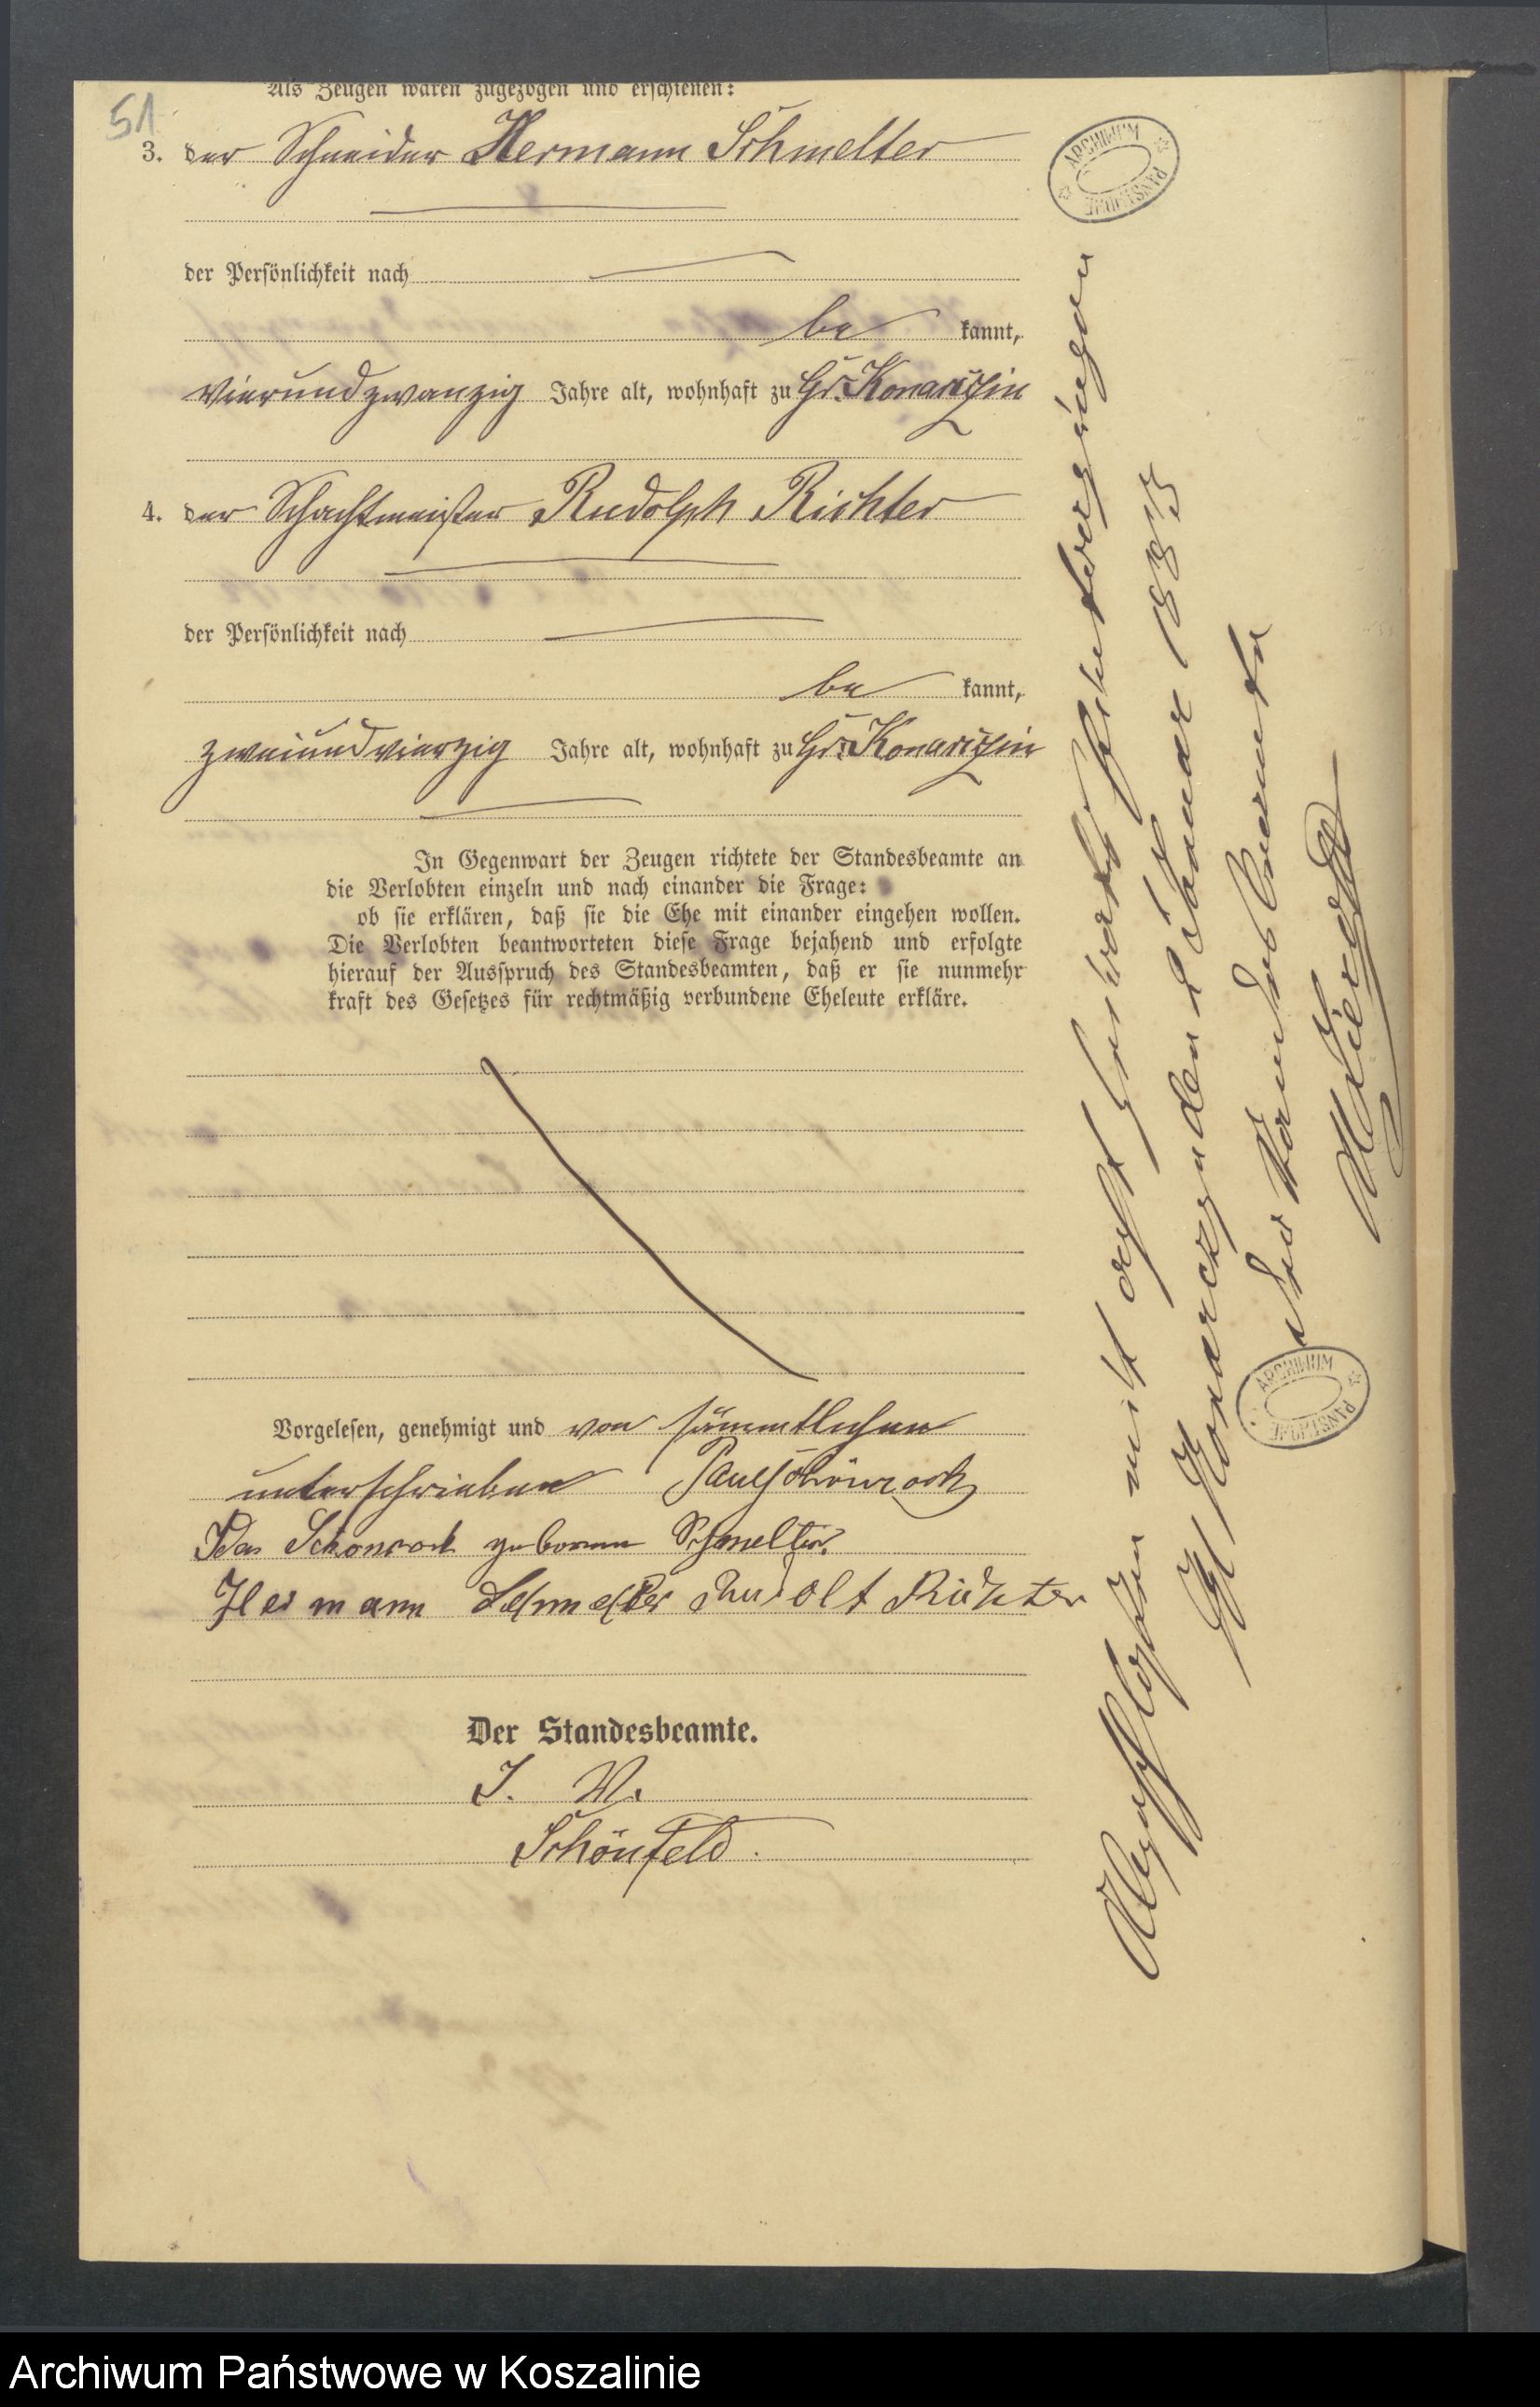 51
Als Zeugen waren zugezogen und erschienen:
3. der Schneider Hermann Schmelter
der Persönlichkeit nach
be kannt,
vierundzwanzig Jahre alt, wohnhaft zu Gr. Konarczin
4. der Schachtmeister Rudolph Richter
der Persönlichkeit nach
be kannt,
zweiundvierzig Jahre alt, wohnhaft zu Gr. Konarczin
In Gegenwart der Zeugen richtete der Standesbeamte an
die Verlobten einzeln und nach einander die Frage:
ob sie erklären, daß sie die Ehe mit einander eingehen wollen.
Die Verlobten beantworteten diese Frage bejahend und erfolgte
hierauf der Ausspruch des Standesbeamten, daß er sie nunmehr
kraft des Gesetzes für rechtmäßig verbundene Eheleute erkläre.
Vorgelesen, genehmigt und von sämmtlichen
unterschrieben Paul Schönrock
Ida Schönrock geborene Schmelter.
Hermann Schmelter Rudolf Richter
Der Standesbeamte.
I. V.
Schönfeld.
Abgeschlossen mit acht Heiraths Eintragungen
Gr Konarczyn den 1 Januar 1885
der Standes Beamte
ARCHIWUM PAŃSTWOWE
ARCHIWUM PAŃSTWOWE
Archiwum Państwowe w Koszalinie